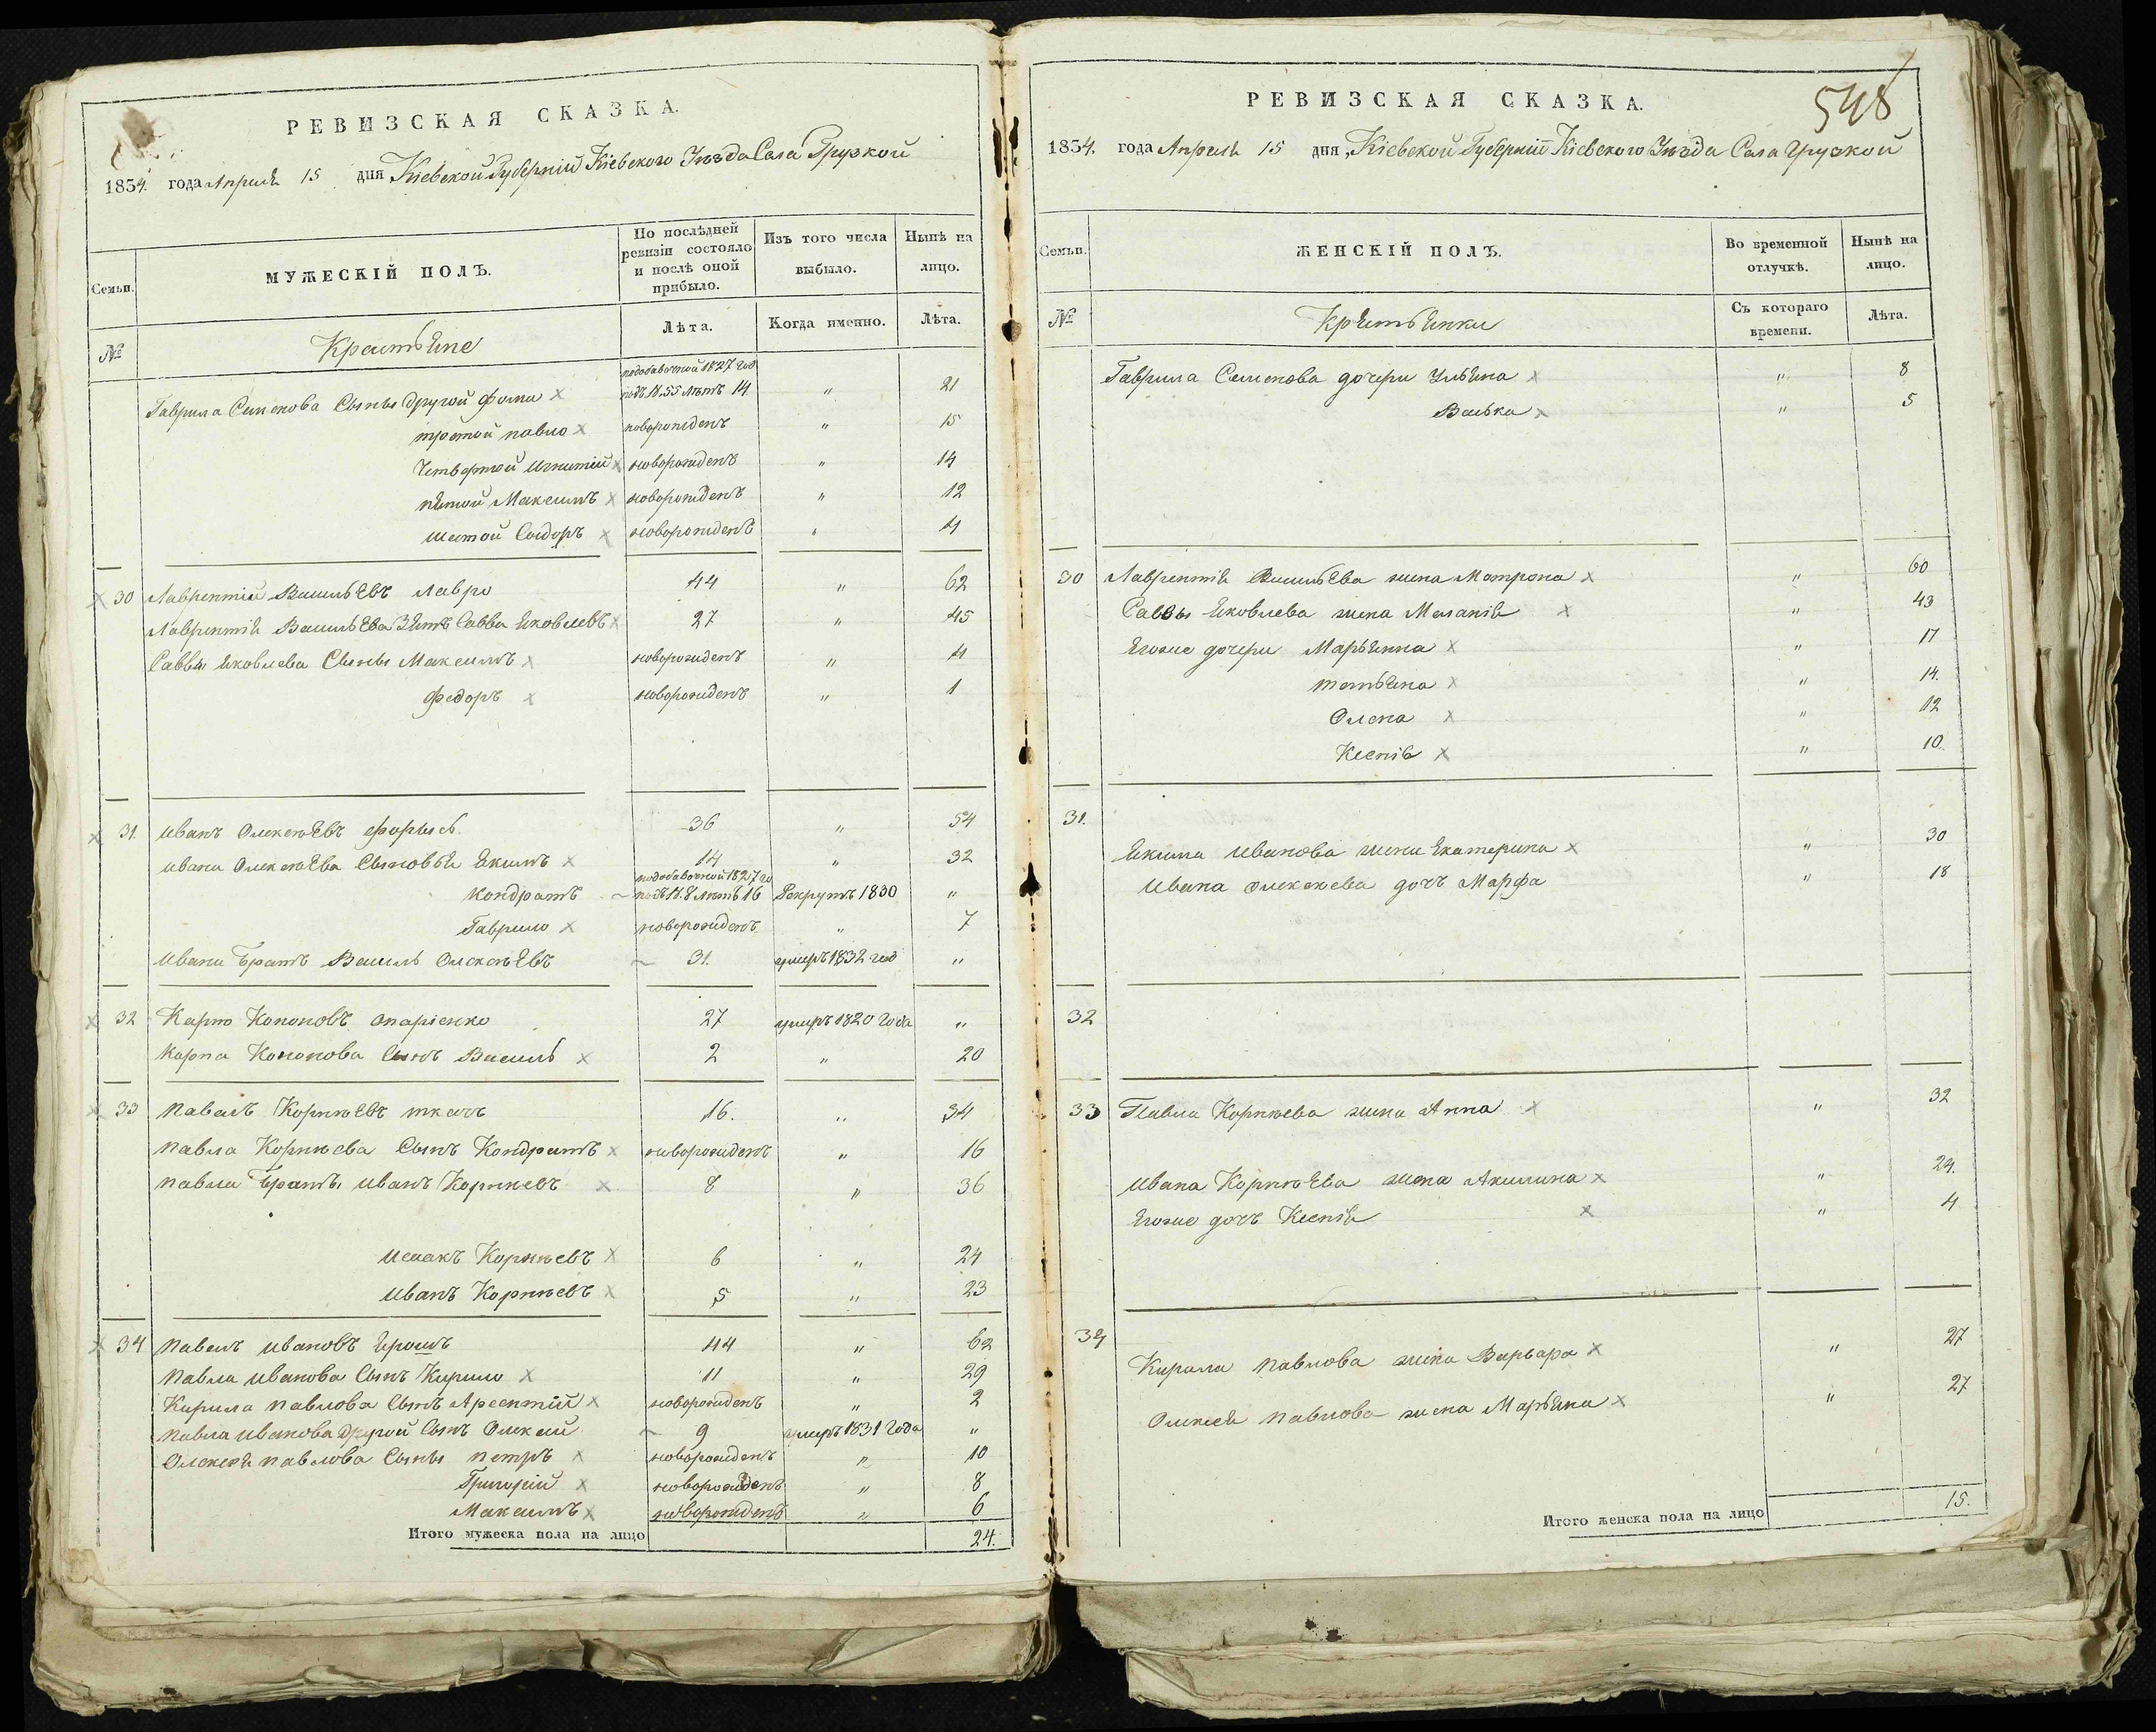 РЕВИЗСКАЯ СКАЗКА.
1834. года Апреля 15 дня Кіевской Губерніи Кіевского Уезда Села Грузкой
Семьи.
МУЖЕСКІЙ ПОЛЪ.
По послѣдней ревизіи состояло и послѣ оной прибыло.
Изъ того числа выбыло.
Нынѣ на лицо.
№
Крестьяне
Лѣта.
Когда именно.
Лѣта.
Гаврила Семенова Сыны другой Фома 14 " 21
третой павло новорожденъ " 15
Четвертой Игнатій новорожденъ " 14
пятой Максимъ новорожденъ " 12
шестой Сидоръ новорожденъ " 4
30 Лаврентій Васильевъ Лавро 44 " 62
Лаврентія Васильева Зять Савва Яковлевъ 27 " 45
Саввы Яковлева Сыны Максимъ новорожденъ " 4
Федоръ новорожденъ " 1
31. Иванъ Олексѣевъ 36 " 54
Ивана Олексѣева Сыновья Якимъ 14 " 32
Кондратъ 16 Рекрутъ 1830 "
Гаврило новорожденъ " 7
Ивана Братъ Василь Олексѣевъ 31. умеръ 1832 год "
32 Карпо Кононовъ 27 умеръ 1820 Года "
Карпа Кононова Сынъ Василь 2 " 20
33 Павелъ Корнѣевъ ткачъ 16. " 34
Павла Корнѣева Сынъ Кондратъ новорожденъ " 16
Павла Братъ Иванъ Корнѣевъ 8 " 36
Исаакъ Корнѣевъ 6 " 24
Иванъ Корнѣевъ 5 " 23
34 Павелъ Ивановъ 44 " 62
Павла Иванова Сынъ Кирило 11 " 29
Кирила Павлова Сынъ Арсентій новорожденъ " 2
Павла Иванова другой Сынъ Олексій 9 умеръ 1831 Года "
Олексѣя Павлова Сыны Петръ новорожденъ " 10
Григорій новорожденъ " 8
Максимъ новорожденъ " 6
Итого мужеска пола на лицо 24.
РЕВИЗСКАЯ СКАЗКА.
548
1834. года Апреля 15 дня, Кіевской Губерніи Кіевского Уезда Села Грузкой
Семьи.
ЖЕНСКІЙ ПОЛЪ.
Во временной отлучкѣ.
Нынѣ на лицо.
№
Крестьянки
Съ котораго времени.
Лѣта.
Гаврила Семенова дочери Ульяна " 8
Васька " 5
30 Лаврентія Васильева жена Матрона " 60
Саввы Яковлева жена Маланія " 43
Ягоже дочери Марьянна " 17
татьяна " 14.
Олена " 12
Ксенія " 10.
31.
Якима Иванова жена Екатерина " 30
Ивана Олексѣева дочъ Марфа " 18
32
33 Павла Корнѣева жена Анна " 32
Ивана Корнѣева жена Акилина " 24.
Ягоже дочъ Ксенія " 4
34
Кирила Павлова жена Варвара " 27
Олексѣя Павлова жена Марьяна " 27
Итого женска пола на лицо 15.